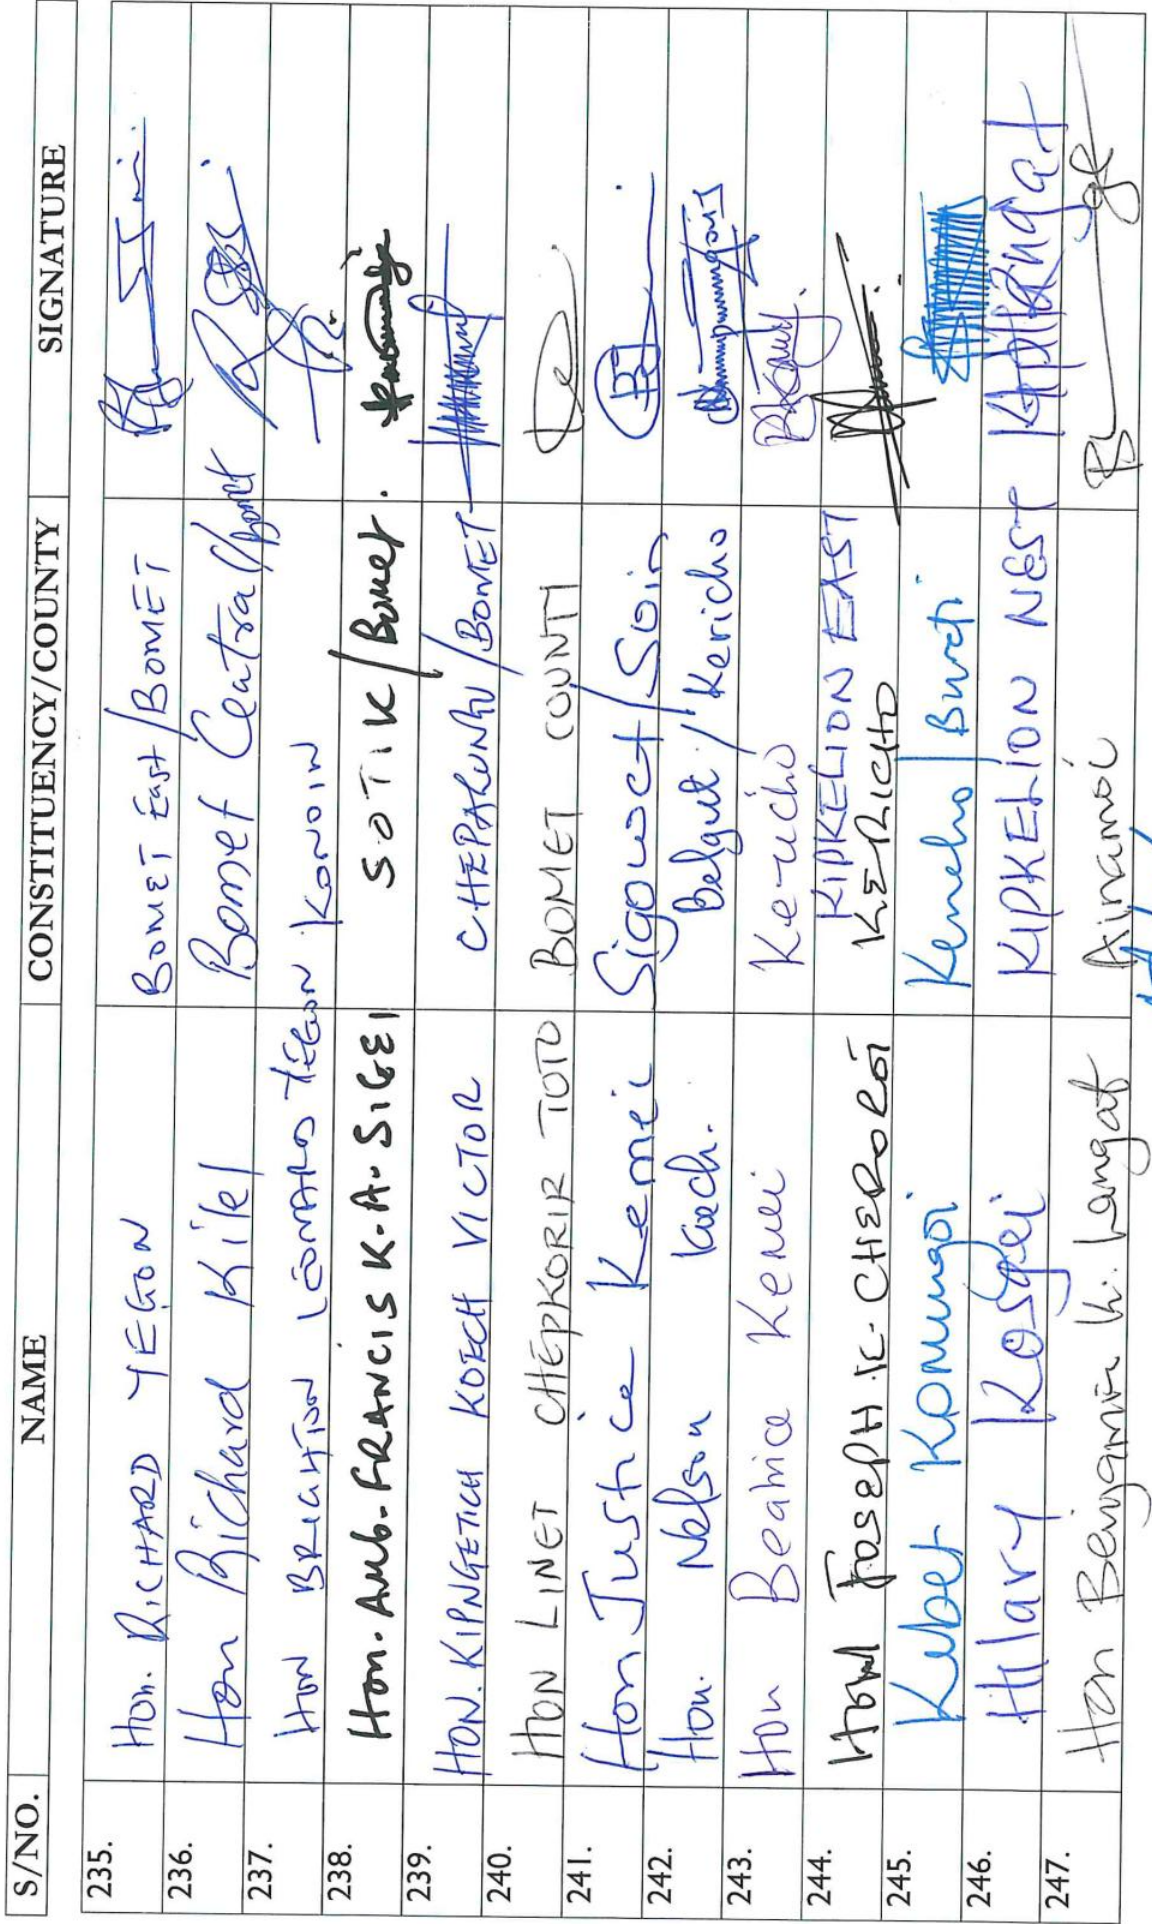 S/NO. NAME CONSTITUENCY/COUNTY SIGNATURE
235. Hon. RICHARD YEGON BOMET East/BOMET
236. Hon Richard Kilel Bomet Central/Bomet
237. HON BRIGHTON LEONARD YEGON KONOIN
238. Hon. Amb. FRANCIS K. A. SIGEI SOTIK/Bomet.
239. HON. KIPNGETICH KOECH VICTOR CHEPALUNGU/BOMET
240. HON LINET CHEPKORIR TOTO BOMET COUNTY
241. Hon Justice Kemei Sigowet/Soin
242. Hon. Nelson Koech. Belgut/Kericho
243. Hon Beatrice Kemei Kericho
244. Hon JOSEPH K. CHEROROT KIPKELION EAST
KERICHO
245. Kibet Komingoi Kericho/Bureti
246. Hilary Kosgei KIPKELION WEST Kaplangat
247. Hon Benjamin K. Langat Ainamoi